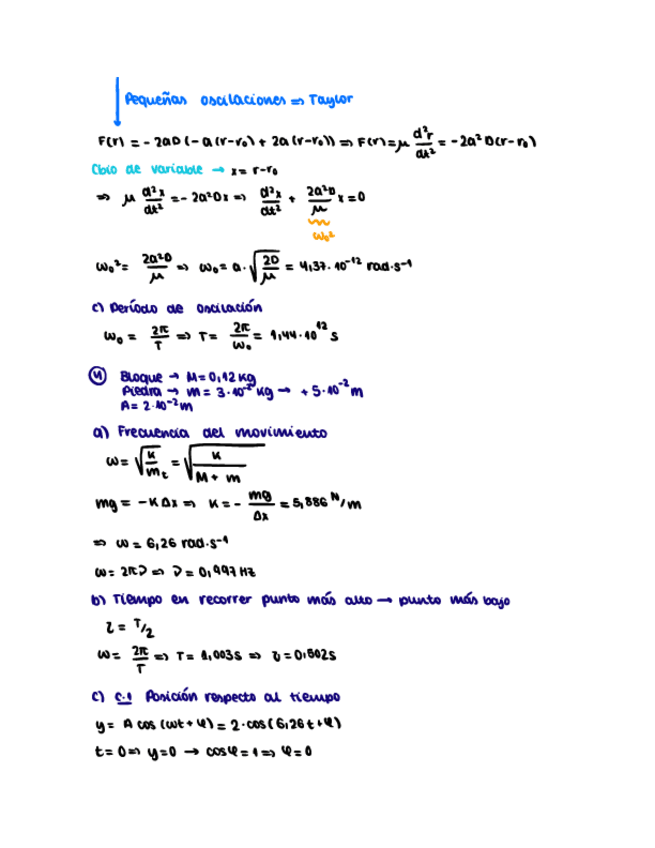 Pequeñas oscilaciones => Taylor
F(r) = - 2aD (- a (r-r₀) + 2a (r-r₀)) => F(r) = μ d²r/dt² = - 2a² D(r-r₀)
Cbio de variable → x = r-r₀
=> μ d²x/dt² = - 2a²Dx => d²x/dt² + 2a²D/μ x = 0
ω₀²
ω₀² = 2a²D/μ => ω₀ = a · √(2D/μ) = 4,37 · 10⁻¹² rad·s⁻¹
c) Período de oscilación
ω₀ = 2π/T => T = 2π/ω₀ = 1,44 · 10¹² s
④ Bloque → M = 0,12 kg
Piedra → m = 3 · 10⁻² kg → + 5 · 10⁻² m
A = 2 · 10⁻² m
a) Frecuencia del movimiento
ω = √(K/mₜ) = √(K/(M + m))
mg = - K Δx => K = - mg/Δx = 5,886 N/m
=> ω = 6,26 rad·s⁻¹
ω = 2πν => ν = 0,997 Hz
b) Tiempo en recorrer punto más alto → punto más bajo
τ = T/2
ω = 2π/T => T = 1,003 s => τ = 0,502 s
c) c.1 Posición respecto al tiempo
y = A cos (ωt + φ) = 2 · cos (6,26 t + φ)
t = 0 => y = 0 → cos φ = 1 => φ = 0